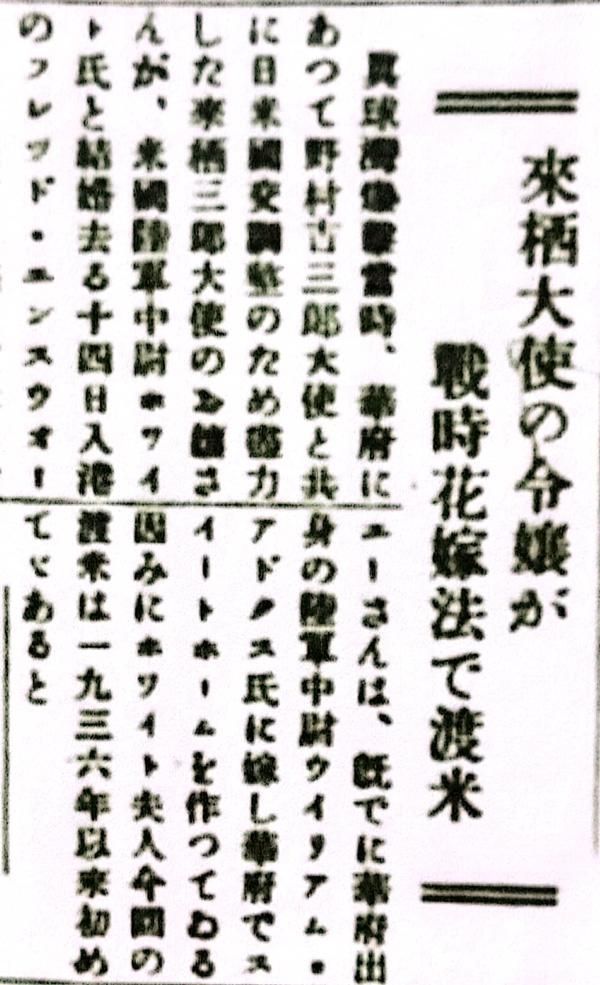 來栖大使の令孃が
戰時花嫁法で渡米
眞珠灣爆擊當時、華府に
あつて野村吉三郎大使と共
に日米國交調整のため盡力
した來栖三郎大使のお孃さ
んが、米國陸軍中尉ホワイ
ト氏と結婚去る十四日入港
のフレツド・エンスウオー
エーさんは、既でに華府出
身の陸軍中尉ウイリアム・
アドムス氏に嫁し華府でス
イートホームを作つてゐる
因みにホワイト夫人今囘の
渡米は一九三六年以來初め
てゞあると